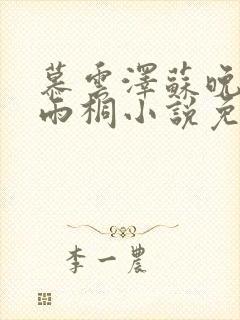 慕雲澤蘇晚
雨桐小說免
李一農